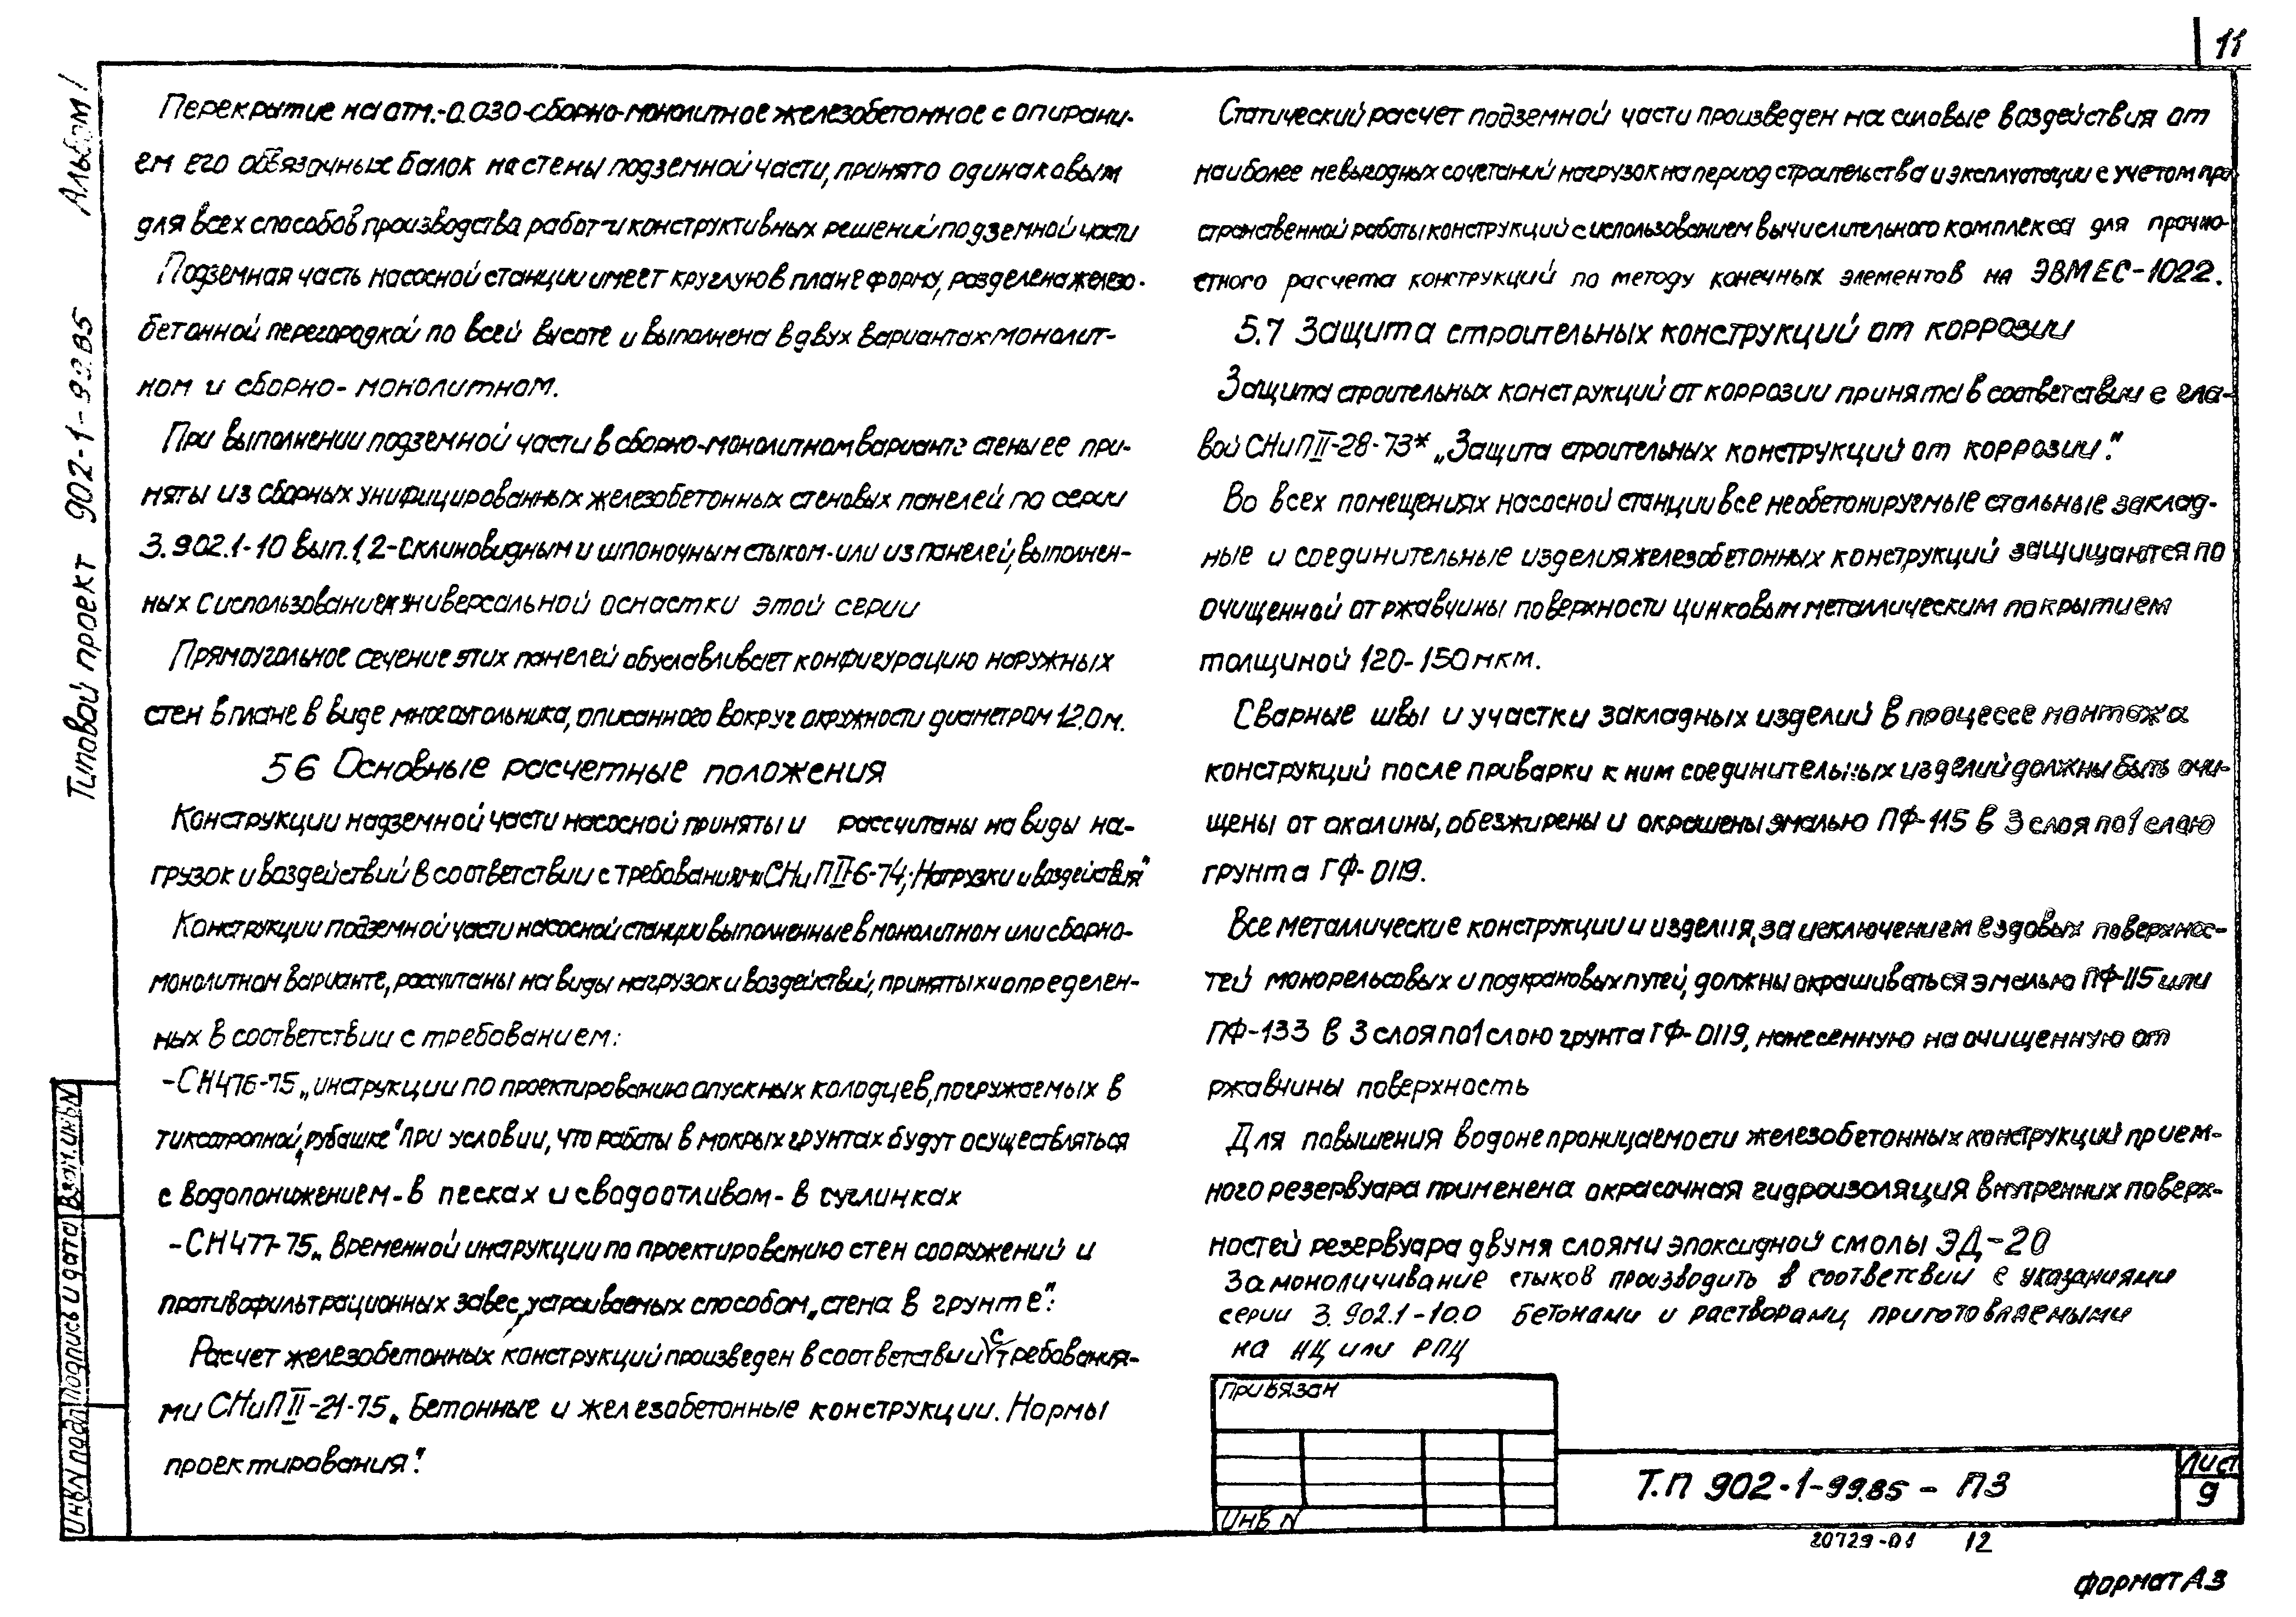 11
Альбом I
Типовой проект 902-1-99.85
Перекрытие на отм.-0.030-сборно-монолитное железобетонное с опирани-
ем его обвязочных балок на стены подземной части, принято одинаковым
для всех способов производства работ и конструктивных решений подземной части
Подземная часть насосной станции имеет круглую в плане форму, разделена железо-
бетонной перегородкой по всей высоте и выполнена в двух вариантах-монолит-
ном и сборно-монолитном.
При выполнении подземной части в сборно-монолитном варианте стены ее при-
няты из сборных унифицированных железобетонных стеновых панелей по серии
3.902.1-10 вып.1,2-с клиновидным и шпоночным стыком-или из панелей, выполнен-
ных с использованием универсальной оснастки этой серии
Прямоугольное сечение этих панелей обуславливает конфигурацию наружных
стен в плане в виде многоугольника, описанного вокруг окружности диаметром 12.0м.
5 6 Основные расчетные положения
Конструкции надземной части насосной приняты и рассчитаны на виды на-
грузок и воздействий в соответствии с требованиями СНиП II-6-74 „Нагрузки и воздействия"
Конструкции подземной части насосной станции выполненные в монолитном или сборно-
монолитном варианте, рассчитаны на виды нагрузок и воздействий, принятых и определен-
ных в соответствии с требованием:
-СН476-75 „инструкции по проектированию опускных колодцев, погружаемых в
тиксотропной „рубашке" при условии, что работы в мокрых грунтах будут осуществляться
с водопонижением-в песках и с водоотливом-в суглинках
-СН477-75 „Временной инструкции по проектированию стен сооружений и
противофильтрационных завес, устраиваемых способом „стена в грунте":
Расчет железобетонных конструкций произведен в соответствии с требования-
ми СНиП II-21-75 „Бетонные и железобетонные конструкции. Нормы
проектирования".
Статический расчет подземной части произведен на силовые воздействия от
наиболее невыгодных сочетаний нагрузок на период строительства и эксплуатации с учетом про
странственной работы конструкций с использованием вычислительного комплекса для прочно-
стного расчета конструкций по методу конечных элементов на ЭВМ ЕС-1022.
5.7 Защита строительных конструкций от коррозии
Защита строительных конструкций от коррозии принята в соответствии с гла-
вой СНиП II-28-73* „Защита строительных конструкций от коррозии".
Во всех помещениях насосной станции все необетонируемые стальные заклад-
ные и соединительные изделия железобетонных конструкций защищаются по
очищенной от ржавчины поверхности цинковым металлическим покрытием
толщиной 120-150 мкм.
Сварные швы и участки закладных изделий в процессе монтажа
конструкций после приварки к ним соединительных изделий должны быть очи-
щены от окалины, обезжирены и окрашены эмалью ПФ-115 в 3 слоя по 1 слою
грунта ГФ-0119.
Все металлические конструкции и изделия, за исключением ездовых поверхнос-
тей монорельсовых и подкрановых путей, должны окрашиваться эмалью ПФ-115 или
ПФ-133 в 3 слоя по 1 слою грунта ГФ-0119, нанесенную на очищенную от
ржавчины поверхность
Для повышения водонепроницаемости железобетонных конструкций прием-
ного резервуара применена окрасочная гидроизоляция внутренних поверх-
ностей резервуара двумя слоями эпоксидной смолы ЭД-20
Замоноличивание стыков производить в соответсвии с указаниями
серии 3.902.1-10.0 бетонами и растворами, приготовляемыми
на НЦ или РПЦ
Привязан
Инв N
Т.П 902-1-99.85 - ПЗ
Лист
9
20729-01 12
Формат А3
Взам.инв.N
Подпись и дата
Инв N подл